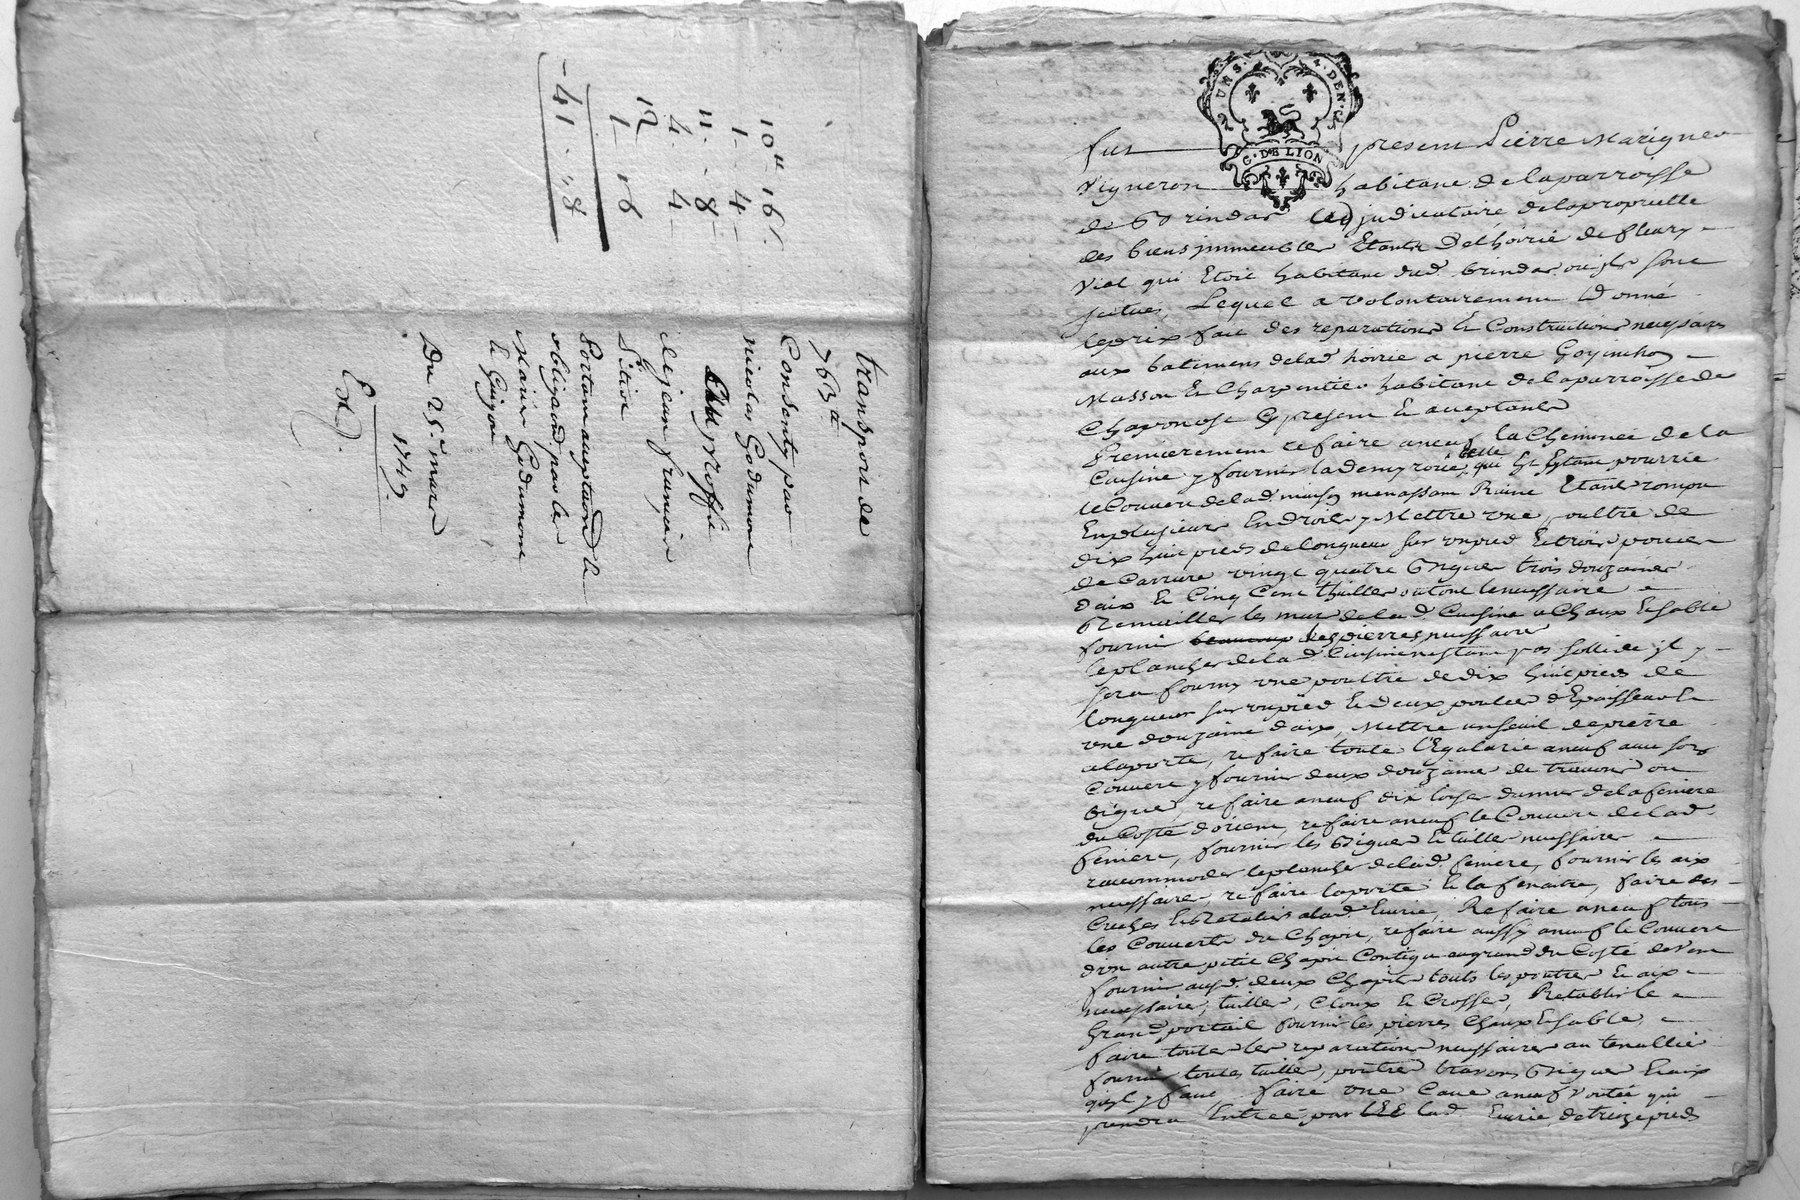 10ᵗᵗ 16ˢ
1 - 4 -
11 - 8 -
4 - 4 -
12
1 - 16
- 41 - 8
transport de
763ᵗᵗ
Consenty par
nicolas Godemone
a jean françois
portant acceptaōn &
obligaōn par les
mariés Godemone
& Guigou
Du 25ᵉ mars
1749
Exp.
2. UNS. 4. DEN.
G. DE LION
fut present Pierre Marigne
Vigneron habitant de la parroisse
de Brindas adjudicataire de la proprietté
des biens immeubles Etants de l'hoirie de fleury
Vial qui Etoit habitant dud. brindas ou ils sont
scitues, Lequel a volontairement Donné
le prix fait des reparations Et Constructions necessaires
aux batimens de lad. hoirie a pierre
Masson Et Charpentier habitant de la parroisse de
Chaponost Cy present Et acceptant
Premierement refaire a neuf la Cheminée de la
Cuisine y fournir la demy roüe celle qui Est Etant pourrie
le Couvert de lad. maison menassant Ruine Etant rompu
En plusieurs Endroits y Mettre une poultre de
dix huit pieds de longueur sur un pied Et trois pouces
de Carrure vingt quatre bigues trois douzaines
d'aix Et Cinq Cent thuilles ou tout le necessaire
Remailler les murs de lad. Cuisine a Chaux Et sable
fournir les pierres necessaires
le plancher de lad. Cuisine n'estant pas sollide il y
sera fourny une poultre de dix huit pieds de
longueur sur un pied Et deux pouces d'Epaisseur Et
une douzaine d'aix, Mettre un seuil de pierre
a la porte, refaire toute l'Egalarie a neuf avec son
Couvert y fournir deux douzaine de travons ou
bigues, refaire a neuf dix toises du mur de la feniere
du Costé d'orient, refaire a neuf le Couvert de lad.
feniere, fournir les bigues Et tuilles necessaires
raccommoder le plancher de lad. feniere, fournir les aix
necessaires, refaire la porte Et la fenaitre, faire des
Creches Et Rateliers a lad. Ecurie, Refaire a neuf tous
les Couverts du Chapit, refaire aussy a neuf le Couvert
d'un autre petit Chapit Contigu au grand du Costé de vent
fournir auxd. deux Chapits touts les poutres Et aix
necessaires, tuilles, Cloux Et Crosses, Retablir le
Grand portail fournir les pierres Chaux Et sable,
faire toutes les reparations necessaires au tenallier
fournir toutes tuilles, poutres travons bigues Et aix
qu'il y faut faire une Cave a neuf Voutée qui
prendra Entrée par lad. Ecurie, de treize pieds